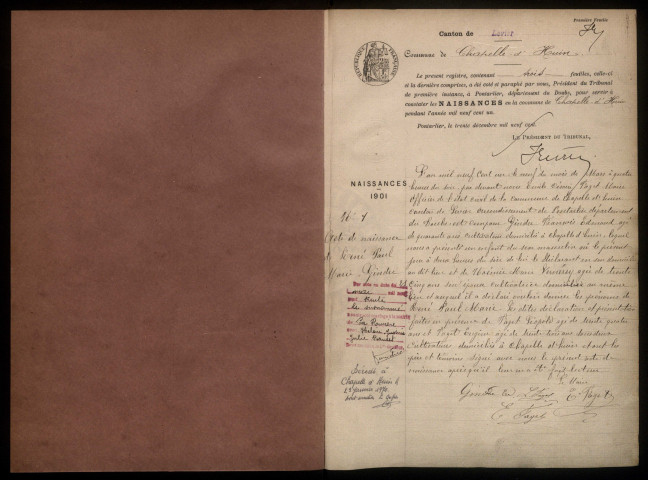 Première Feuille
Canton de Levier
Commune de Chapelle d'Huin
RÉPUBLIQUE FRANÇAISE
Le présent registre, contenant trois feuilles, celle-ci
et la dernière comprises, a été coté et paraphé par nous, Président du Tribunal
de première instance, à Pontarlier, département du Doubs, pour servir à
constater les NAISSANCES en la commune de Chapelle d'Huin
pendant l'année mil neuf cent un.
Pontarlier, le trente décembre mil neuf cent.
LE PRÉSIDENT DU TRIBUNAL,
NAISSANCES
1901
N° 1
Acte de naissance
de René Paul
Marie Gindre
L'an mil neuf cent un le neuf du mois de Mars à quatre
heures du soir, par devant nous Emile Paget Maire
Officier de l'état civil de la commune de Chapelle d'Huin
canton de Levier arrondissement de Pontarlier département
du Doubs est comparu Gindre François Edmond âgé
de quarante ans, cultivateur domicilié à Chapelle d'Huin, lequel
nous a présenté un enfant du sexe masculin né le présent
jour à deux heures du soir de lui le déclarant en son domicile
au dit lieu et de Marie âgée de trente
cinq ans son épouse cultivatrice domiciliée au même
lieu et auquel il a déclaré vouloir donner les prénoms de
René Paul Marie. Les dites déclaration et présentation
faites en présence de Paget Léopold âgé de trente quatre
ans et Paget âgé de trente ans tous deux
cultivateurs, domiciliés à Chapelle d'Huin et ont les
père et témoins signé avec nous le présent acte de
naissance après qu'il leur en a été fait lecture
Le Maire
Décédé à
Chapelle d'Huin le
E. Paget
E. Paget